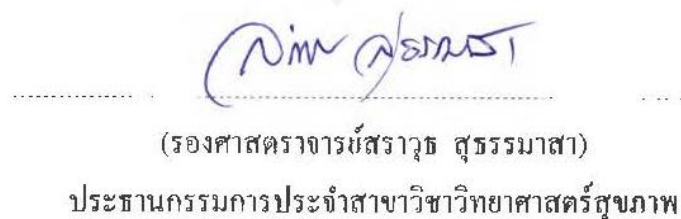 (รองศาสตราจารย์สราวุธ สุธรรมาสา)
ประธานกรรมการประจำสาขาวิชาวิทยาศาสตร์สุขภาพ